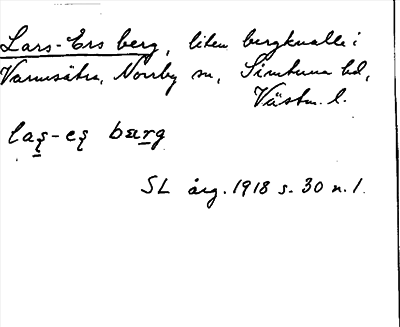 Lars-Ers berg, liten bergknalle i
Varmsätra, Norrby sn, Simtuna hd,
Västm. l.
laș-eș bærg
SL årg. 1918 s. 30 n. 1.